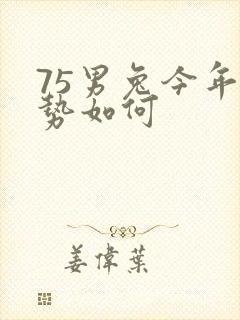 75男兔今年
势如何
姜偉葉